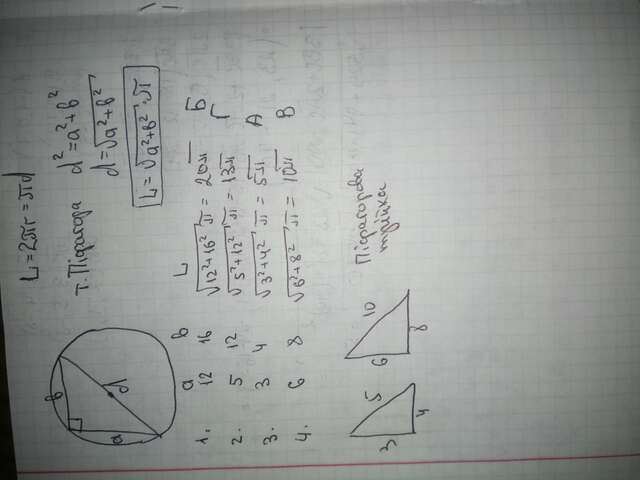 L = 2πr = πd
т. Піфагора d² = a² + b²
d = √a² + b²
L = √a² + b² · π
a
b
d
a b L
1. 12 16 √12² + 16² π = 20π Б
2. 5 12 √5² + 12² π = 13π Г
3. 3 4 √3² + 4² π = 5π А
4. 6 8 √6² + 8² π = 10π В
3 5 4
6 10 8
Піфагорова
трійка